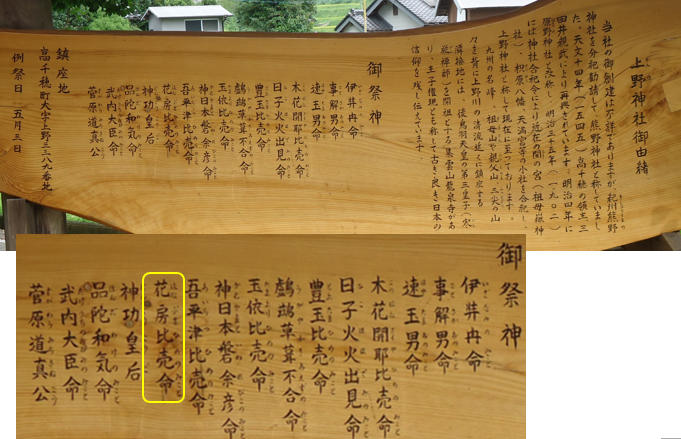 上野神社御由緒
当社の御創建は不詳でありますが、紀州熊野
神社を分祀勧請して熊野神社と称していまし
た。天文十四年(一五四五)高千穂の領主、三
田井親武により再興されています。明治四年に
原野神社と改称し、明治三十五年(一九〇二)
には神社合祀令により近在の間の宮(祖母嶽神
社)、柤原八幡、天満宮等の小社を合祀し、
上野神社と称して現在に至っております。
九州の名峰、祖母山や親父山、三尖の山
々を背に上野川の清流近くに鎮座する
隣接地には、後鳥羽天皇の第三皇子(寒
巌禅師)を開祖とする集雲山龍泉寺があ
り、王子権現とも称して古き良き日本の
信仰を残し伝えています。
御祭神
伊弉冉命
事解男命
速玉男命
木花開耶比売命
日子火火出見命
豊玉比売命
鸕鷀草葺不合命
玉依比売命
神日本磐余彦命
吾平津比売命
花房比売命
神功皇后
品陀和気命
武内大臣命
菅原道真公
鎮座地
高千穂町大字上野三二八九番地
例祭日 五月三日
御祭神
伊弉冉命
事解男命
速玉男命
木花開耶比売命
日子火火出見命
豊玉比売命
鸕鷀草葺不合命
玉依比売命
神日本磐余彦命
吾平津比売命
花房比売命
神功皇后
品陀和気命
武内大臣命
菅原道真公